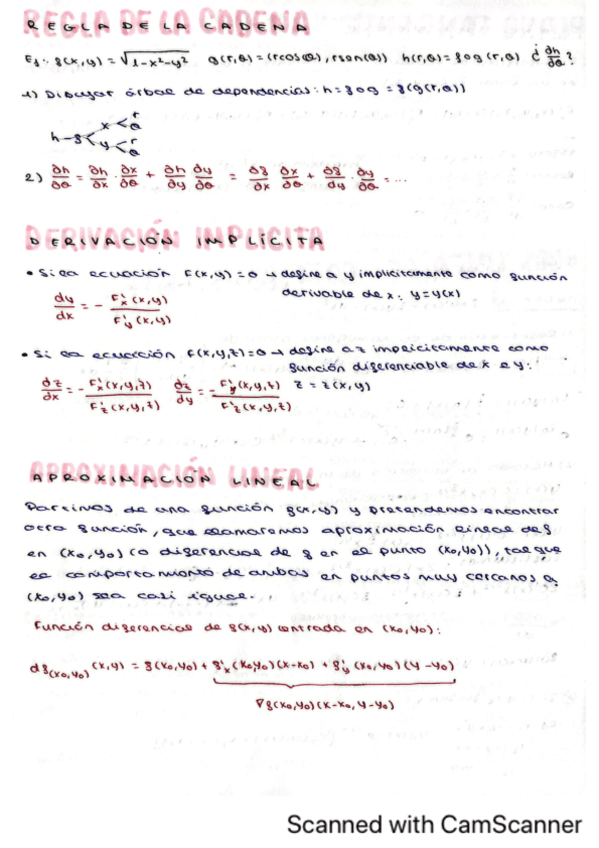 REGLA DE LA CADENA
Ej: f(x,y) = √(1-x²-y²) g(r,θ) = (rcos(θ), rsen(θ)) h(r,θ) = fog (r,θ) ¿ ∂h/∂θ ?
1) Dibujar árbol de dependencias: h = fog = f(g(r,θ))
h - f < x < r θ
y < r θ
2) ∂h/∂θ = ∂h/∂x · ∂x/∂θ + ∂h/∂y ∂y/∂θ = ∂f/∂x ∂x/∂θ + ∂f/∂y · ∂y/∂θ = ...
DERIVACIÓN IMPLÍCITA
• Si la ecuación F(x,y) = 0 → define a y implícitamente como función
derivable de x: y = y(x)
dy/dx = - F'x (x,y) / F'y (x,y)
• Si la ecuación F(x,y,z) = 0 → define a z implícitamente como
función diferenciable de x e y:
∂z/∂x = - F'x (x,y,z) / F'z (x,y,z) ∂z/∂y = - F'y (x,y,z) / F'z (x,y,z) z = z(x,y)
APROXIMACIÓN LINEAL
Partimos de una función f(x,y) y pretendemos encontrar
otra función, que llamaremos aproximación lineal de f
en (x₀,y₀) (o diferencial de f en el punto (x₀,y₀)), tal que
el comportamiento de ambas en puntos muy cercanos a
(x₀,y₀) sea casi igual.
Función diferencial de f(x,y) centrada en (x₀,y₀):
df(x₀,y₀) (x,y) = f(x₀,y₀) + f'x (x₀,y₀)(x-x₀) + f'y (x₀,y₀)(y-y₀)
∇f(x₀,y₀)(x-x₀, y-y₀)
Scanned with CamScanner